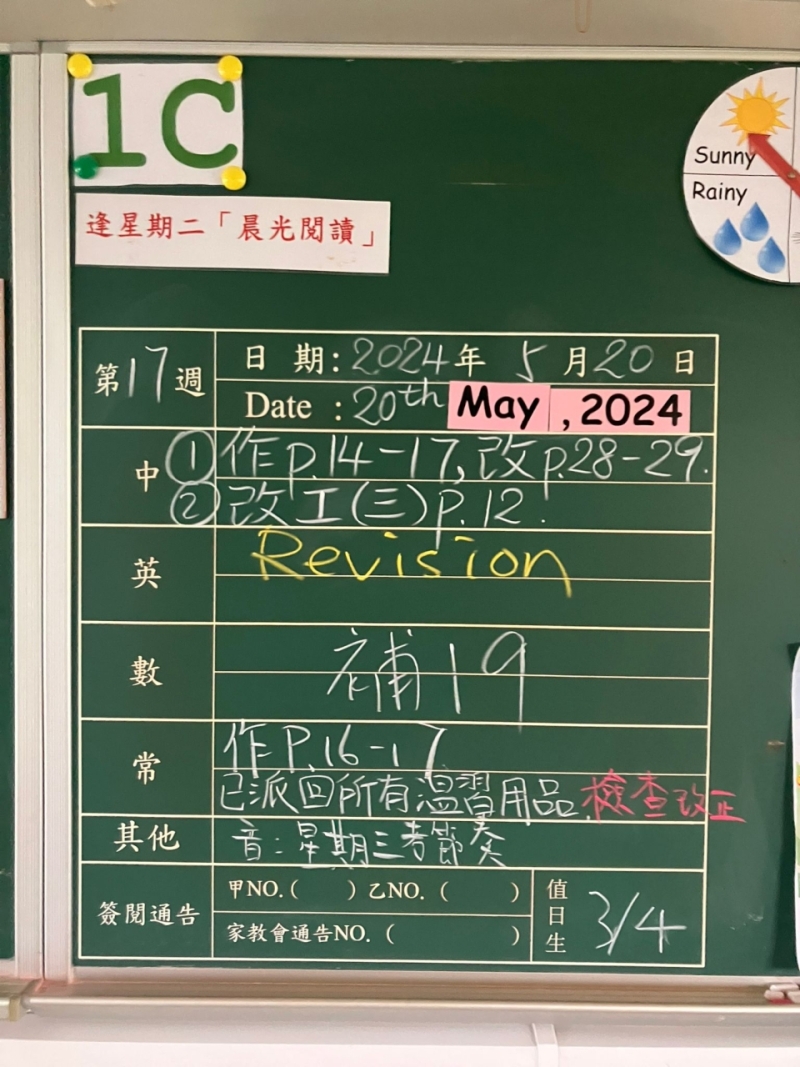 1C
逢星期二「晨光閱讀」
Sunny
Rainy
第17週
日 期:2024年 5月20日
Date :20th May , 2024
中
①作p.14-17,改p.28-29.
②改工(三)p.12.
英
Revision
數
補19
常
作P.16-17
已派回所有溫習用品.檢查改正
其他
音:星期三考節奏
簽閱通告
甲NO.( )乙NO.( )
家教會通告NO.( )
值日生
3/4